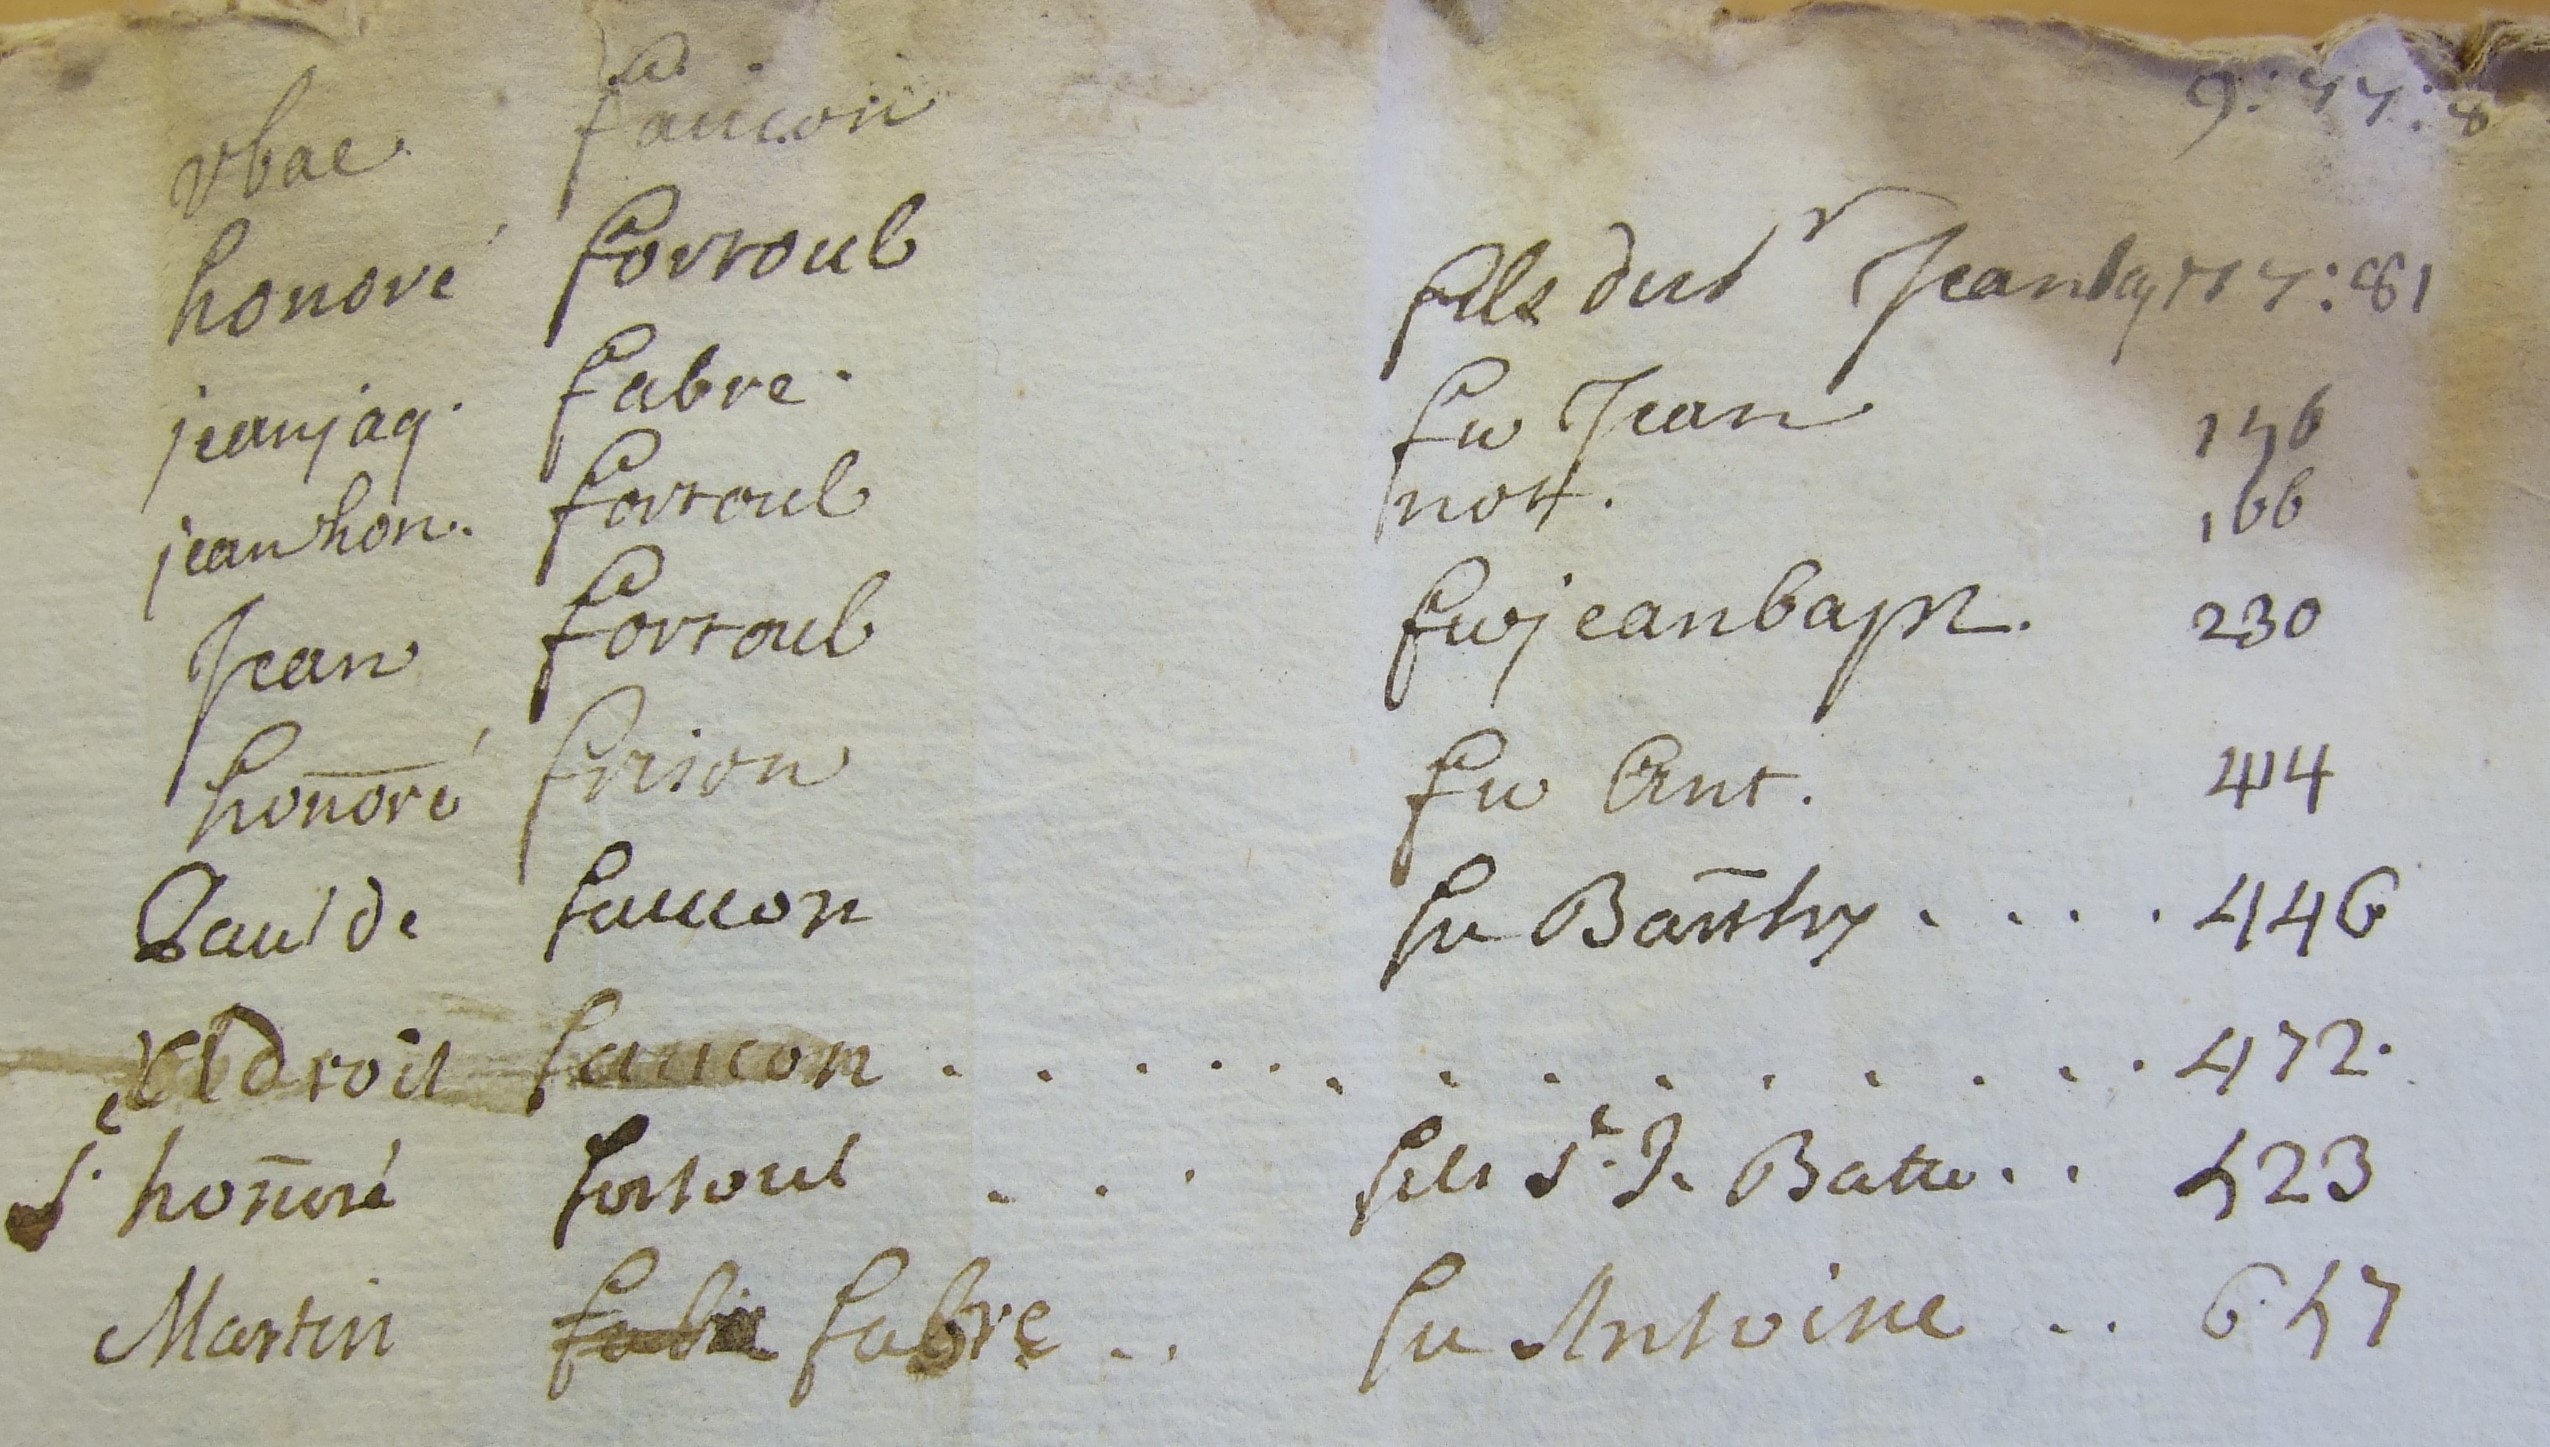 Vbac faucon 9: 57: 8
honoré fortoul fils du s^r Jean bap 57: 81
jean jaq. fabre. fu Jean 156
jean hon. fortoul nott. 166
Jean fortoul fu jean bapt. 230
honnoré frison fu Ant. 414
Paul de faucon fu Barthy .... 446
ladroit faucon ................ 472.
S^e honnoré fortoul ... fils S^r J. Batte .. 523
Martin fabre fabre .. fu Antoine .. 657